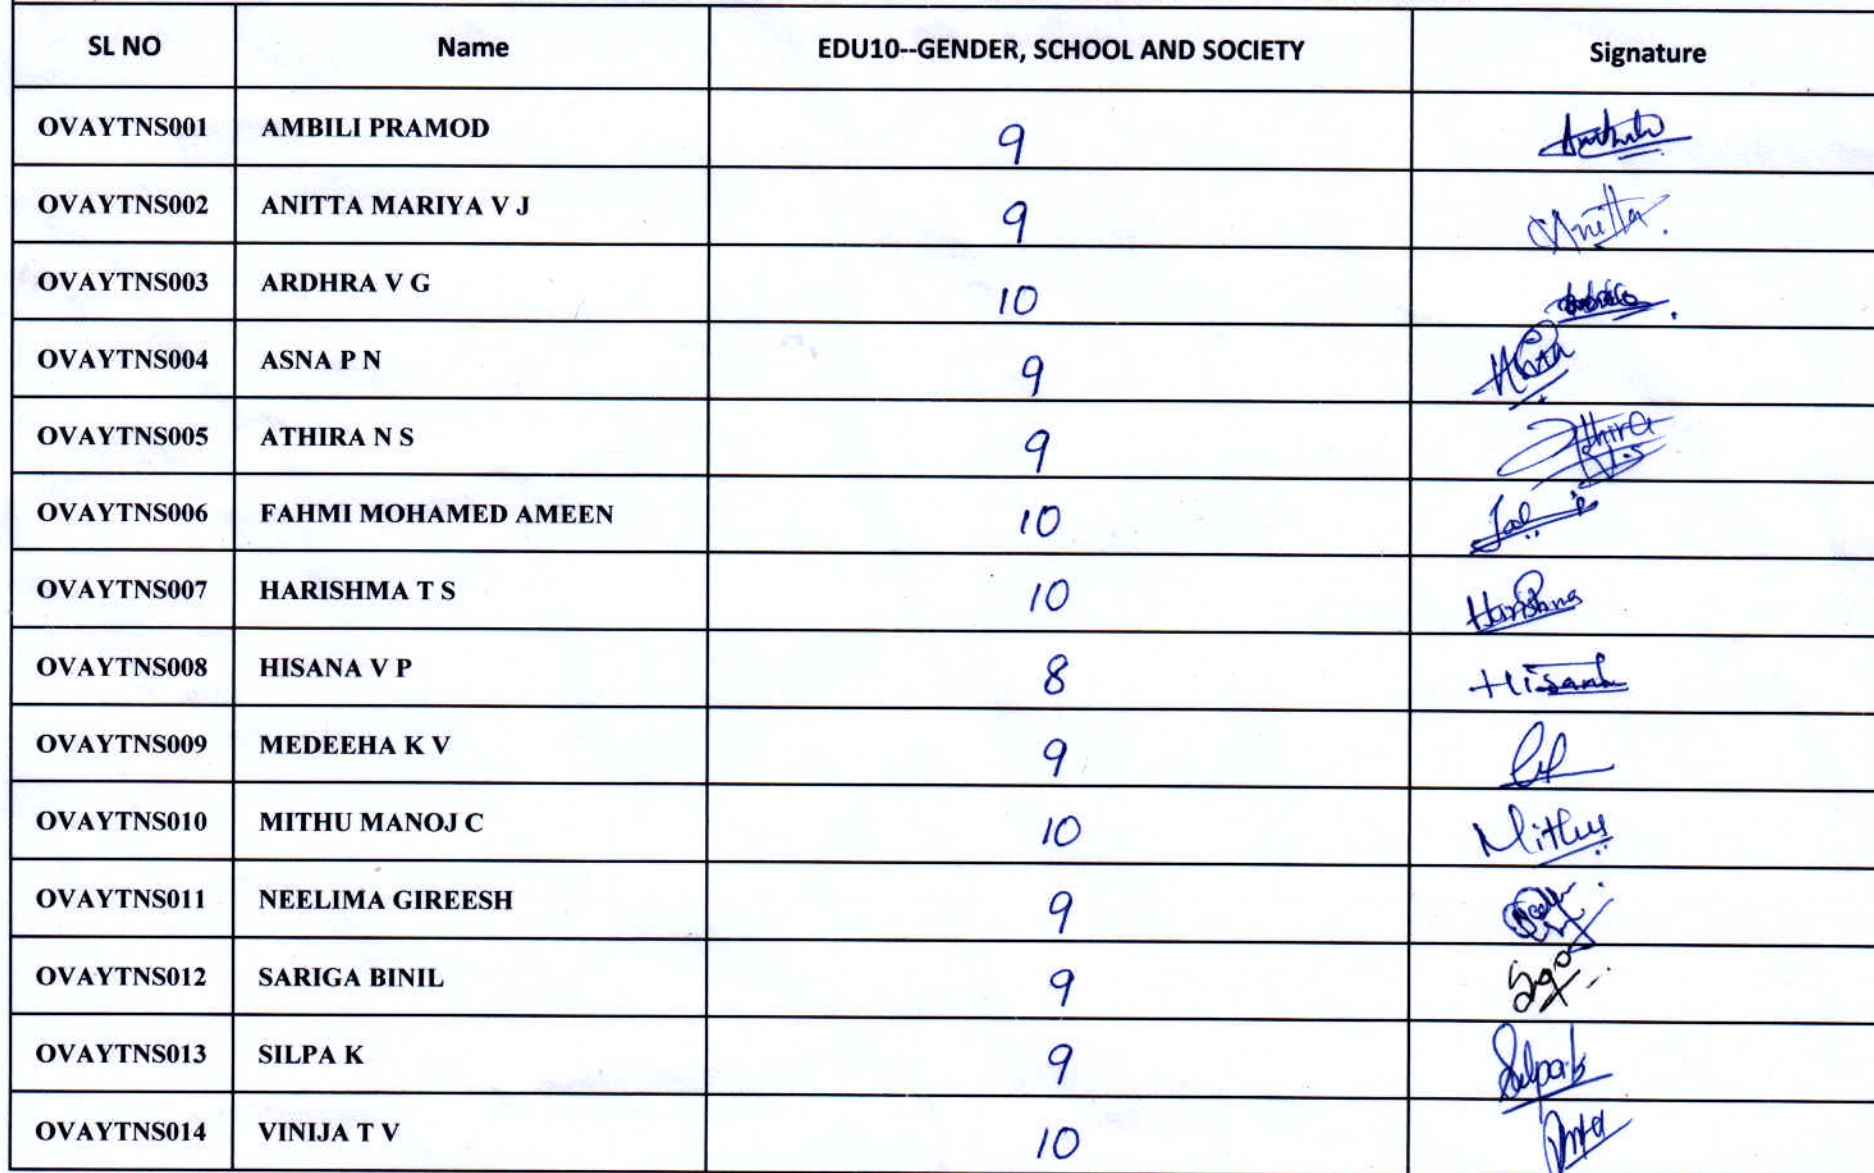 SL NO Name EDU10--GENDER, SCHOOL AND SOCIETY Signature
OVAYTNS001 AMBILI PRAMOD 9
OVAYTNS002 ANITTA MARIYA V J 9 Anitta.
OVAYTNS003 ARDHRA V G 10
OVAYTNS004 ASNA P N 9
OVAYTNS005 ATHIRA N S 9 Athira N.S
OVAYTNS006 FAHMI MOHAMED AMEEN 10
OVAYTNS007 HARISHMA T S 10 Harishma
OVAYTNS008 HISANA V P 8 Hisana
OVAYTNS009 MEDEEHA K V 9
OVAYTNS010 MITHU MANOJ C 10 Mithu
OVAYTNS011 NEELIMA GIREESH 9
OVAYTNS012 SARIGA BINIL 9
OVAYTNS013 SILPA K 9 Silpa k
OVAYTNS014 VINIJA T V 10